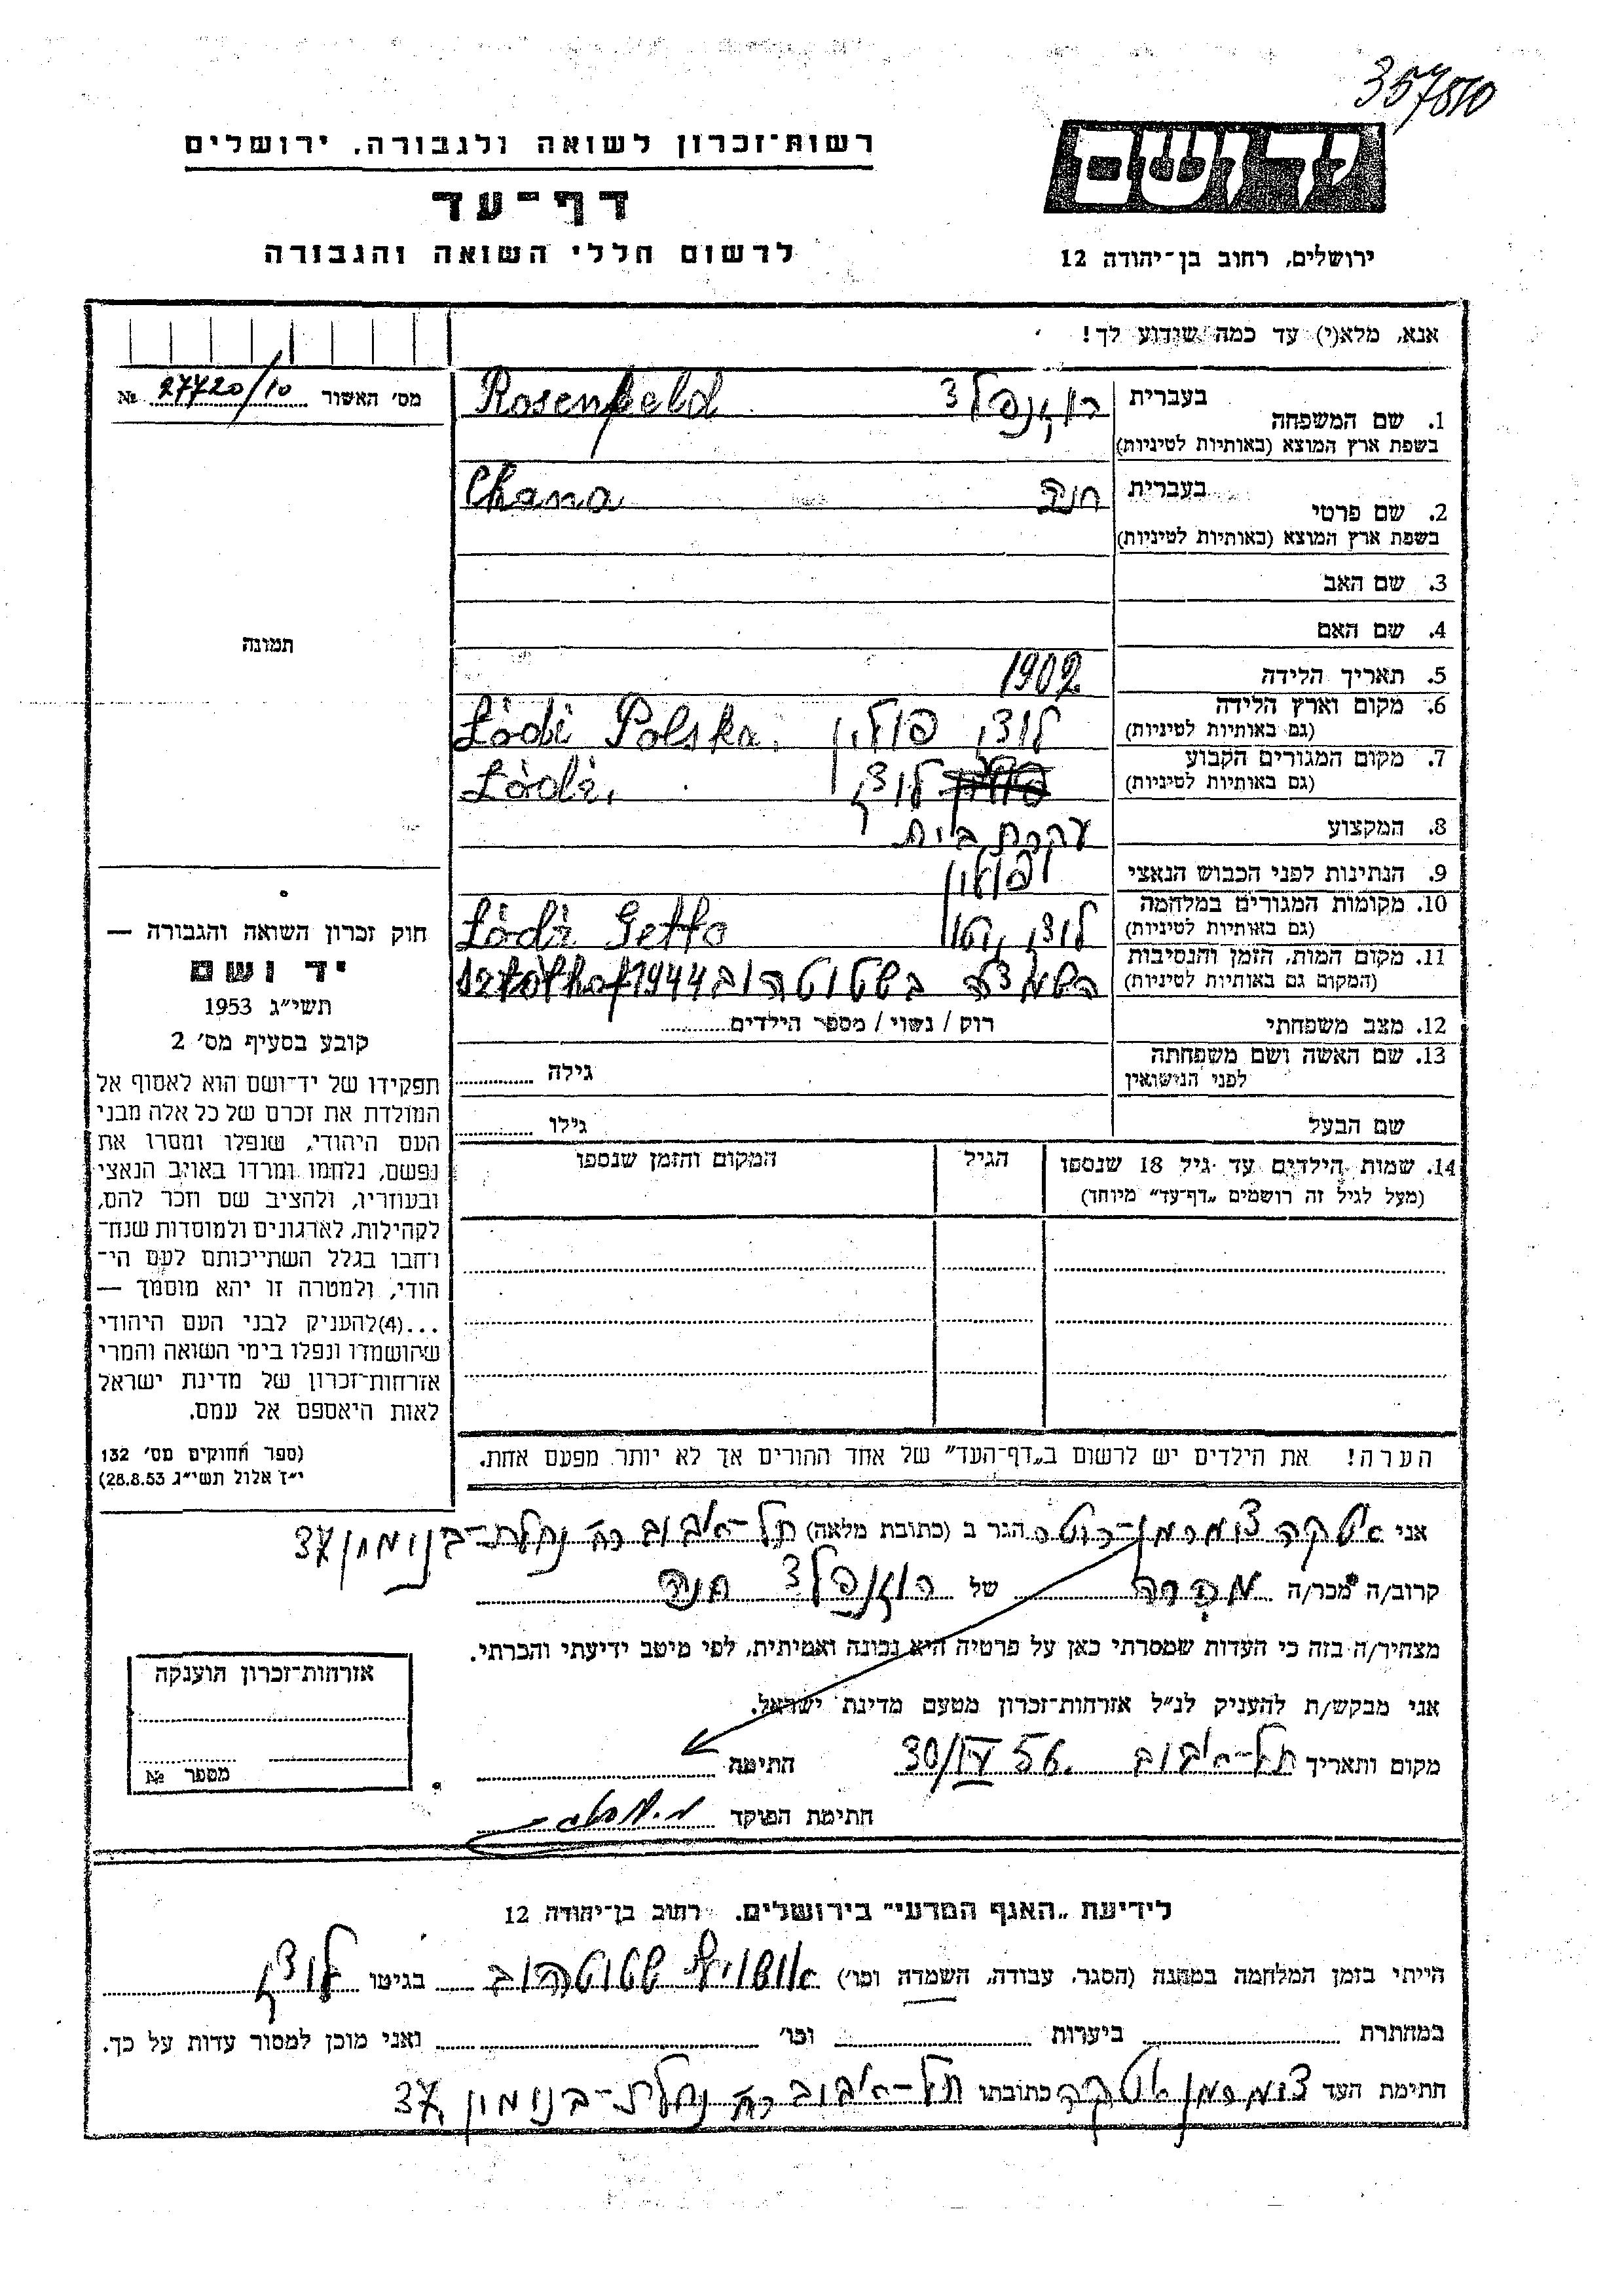 357810
רשות־זכרון לשואה ולגבורה, ירושלים
דף־עד
לרשום חללי השואה והגבורה
ידושם
ירושלים, רחוב בן־יהודה 12
אנא, מלא(י) עד כמה שידוע לך!
מס' האשור 27720/10 №
1. שם המשפחה בעברית רוזנפלד Rosenfeld
בשפת ארץ המוצא (באותיות לטיניות)
2. שם פרטי בעברית חנה Chana
בשפת ארץ המוצא (באותיות לטיניות)
3. שם האב
4. שם האם
תמונה
5. תאריך הלידה 1902
6. מקום וארץ הלידה לודז, פולין Łódź Polska.
(גם באותיות לטיניות)
7. מקום המגורים הקבוע לודז, Łódź,
(גם באותיות לטיניות)
8. המקצוע עקרת בית
9. הנתינות לפני הכבוש הנאצי פולין
10. מקומות המגורים במלחמה לודז, גטו Łódź Getto
(גם באותיות לטיניות)
11. מקום המות, הזמן והנסיבות השמדה בשטוטהוב 1944
(המקום גם באותיות לטיניות)
12. מצב משפחתי רוק / נשוי / מספר הילדים
13. שם האשה ושם משפחתה גילה
לפני הנישואין
שם הבעל גילו
14. שמות הילדים עד גיל 18 שנספו הגיל המקום והזמן שנספו
(מעל לגיל זה רושמים „דף־עד” מיוחד)
חוק זכרון השואה והגבורה —
יד ושם
תשי״ג 1953
קובע בסעיף מס' 2
תפקידו של יד־ושם הוא לאסוף אל
המולדת את זכרם של כל אלה מבני
העם היהודי, שנפלו ומסרו את
נפשם, נלחמו ומרדו באויב הנאצי
ובעוזריו, ולהציב שם וזכר להם,
לקהילות, לארגונים ולמוסדות שנח־
רחבו בגלל השתייכותם לעם הי־
הודי, ולמטרה זו יהא מוסמך —
...(4)להעניק לבני העם היהודי
שהושמדו ונפלו בימי השואה והמרי
אזרחות־זכרון של מדינת ישראל
לאות היאספם אל עמם.
(ספר החוקים מס' 132
י״ז אלול תשי״ג 28.8.53)
הערה! את הילדים יש לרשום ב„דף־העד” של אחד ההורים אך לא יותר מפעם אחת.
אני איטקה צומרמן־רוטר הגר ב (כתובת מלאה) תל־אביב רח' נחלת־בנימין 37
קרוב/ה מכר/ה מכרה של רוזנפלד חנה
מצהיר/ה בזה כי העדות שמסרתי כאן על פרטיה היא נכונה ואמיתית, לפי מיטב ידיעתי והכרתי.
אני מבקש/ת להעניק לנ״ל אזרחות־זכרון מטעם מדינת ישראל.
מקום ותאריך תל־אביב 30/IV 56. חתימה
חתימת הפוקד
אזרחות־זכרון הוענקה
מספר №
לידיעת „האגף המדעי” בירושלים. רחוב בן־יהודה 12
הייתי בזמן המלחמה במחנה (הסגר, עבודה, השמדה וכו') אושויץ שטוטהוב בגיטו לודז
במחתרת ביערות וכו' ואני מוכן למסור עדות על כך.
חתימת העד צומרמן איטקה כתובתו תל־אביב רח' נחלת־בנימין 37